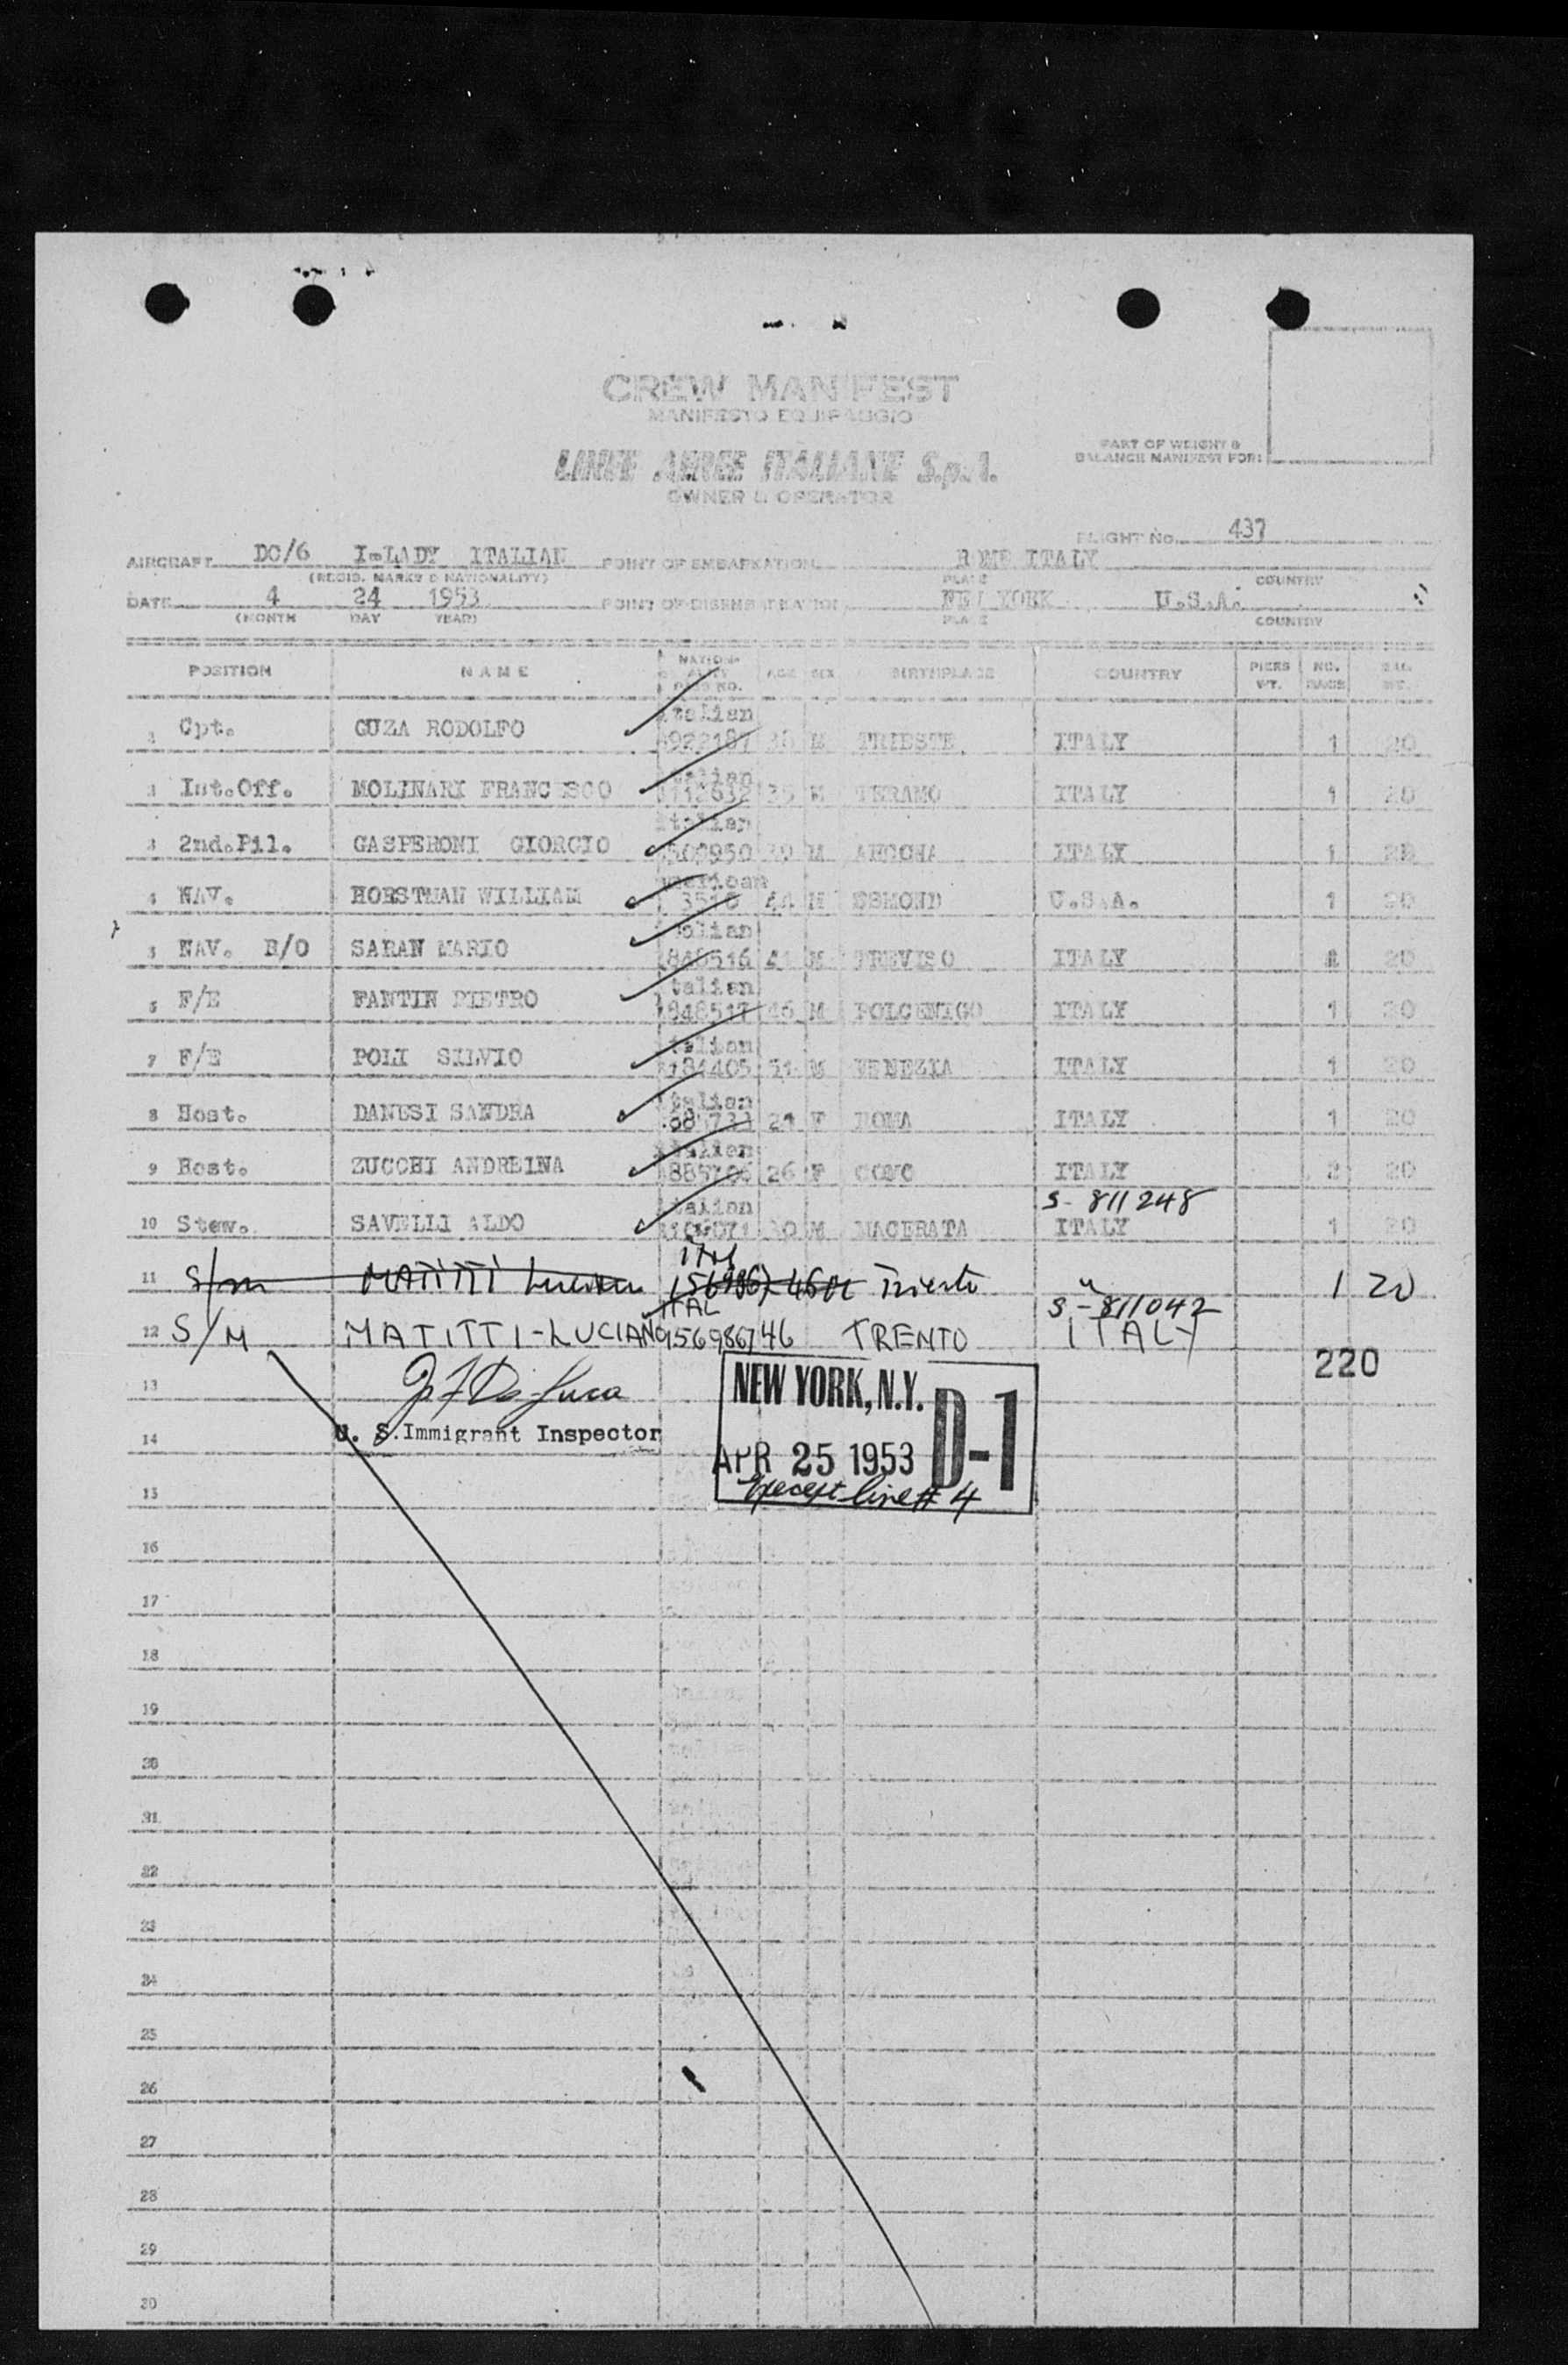 CREW MANIFEST
MANIFESTO EQUIPAGGIO
LINEE AEREE ITALIANE S.p.A.
OWNER & OPERATOR
PART OF WEIGHT &
BALANCE MANIFEST FOR:
FLIGHT No. 437
AIRCRAFT DC/6 I-LADY ITALIAN POINT OF EMBARKATION ROME ITALY
(REGIS. MARKS & NATIONALITY) PLACE COUNTRY
DATE 4 24 1953 POINT OF DISEMBARKATION NEW YORK U.S.A.
(MONTH DAY YEAR) PLACE COUNTRY
POSITION NAME NATION-ALITY PASS NO. AGE SEX BIRTHPLACE COUNTRY PIECES WT. NO. BAGS BAG. WT.
Italian
Cpt. GUZA RODOLFO M TRIESTE ITALY 1 20
Italian
Int.Off. MOLINARI FRANCESCO 35 M TERAMO ITALY 1 20
Italian
3 2nd.Pil. GASPERONI GIORGIO M ANCONA ITALY 1 20
American
4 NAV. HORSTMAN WILLIAM 44 M ESMOND U.S.A. 1 20
Italian
5 NAV. R/O SARAN MARIO 848516 41 M TREVISO ITALY 20
Italian
F/E FANTIN PIETRO 848517 46 M POLCENIGO ITALY 1 20
Italian
7 F/E POLI SILVIO M VENEZIA ITALY 1 20
Italian
8 Host. DANESI SANDRA F ROMA ITALY 1 20
Italian
9 Host. ZUCCHI ANDREINA 26 F COMO ITALY 20
Italian S-811248
10 Stew. SAVELLI ALDO 30 M MACERATA ITALY 1 20
11 S/m MATITTI Luciano 46 Trieste " 1 20
ITAL S-811042
12 S/M MATITTI-LUCIANO 46 TRENTO ITALY
220
13
U. S. Immigrant Inspector
14
NEW YORK, N.Y.
D-1
APR 25 1953
except line # 4
15
16
17
18
19
20
21
22
23
24
25
26
27
28
29
30